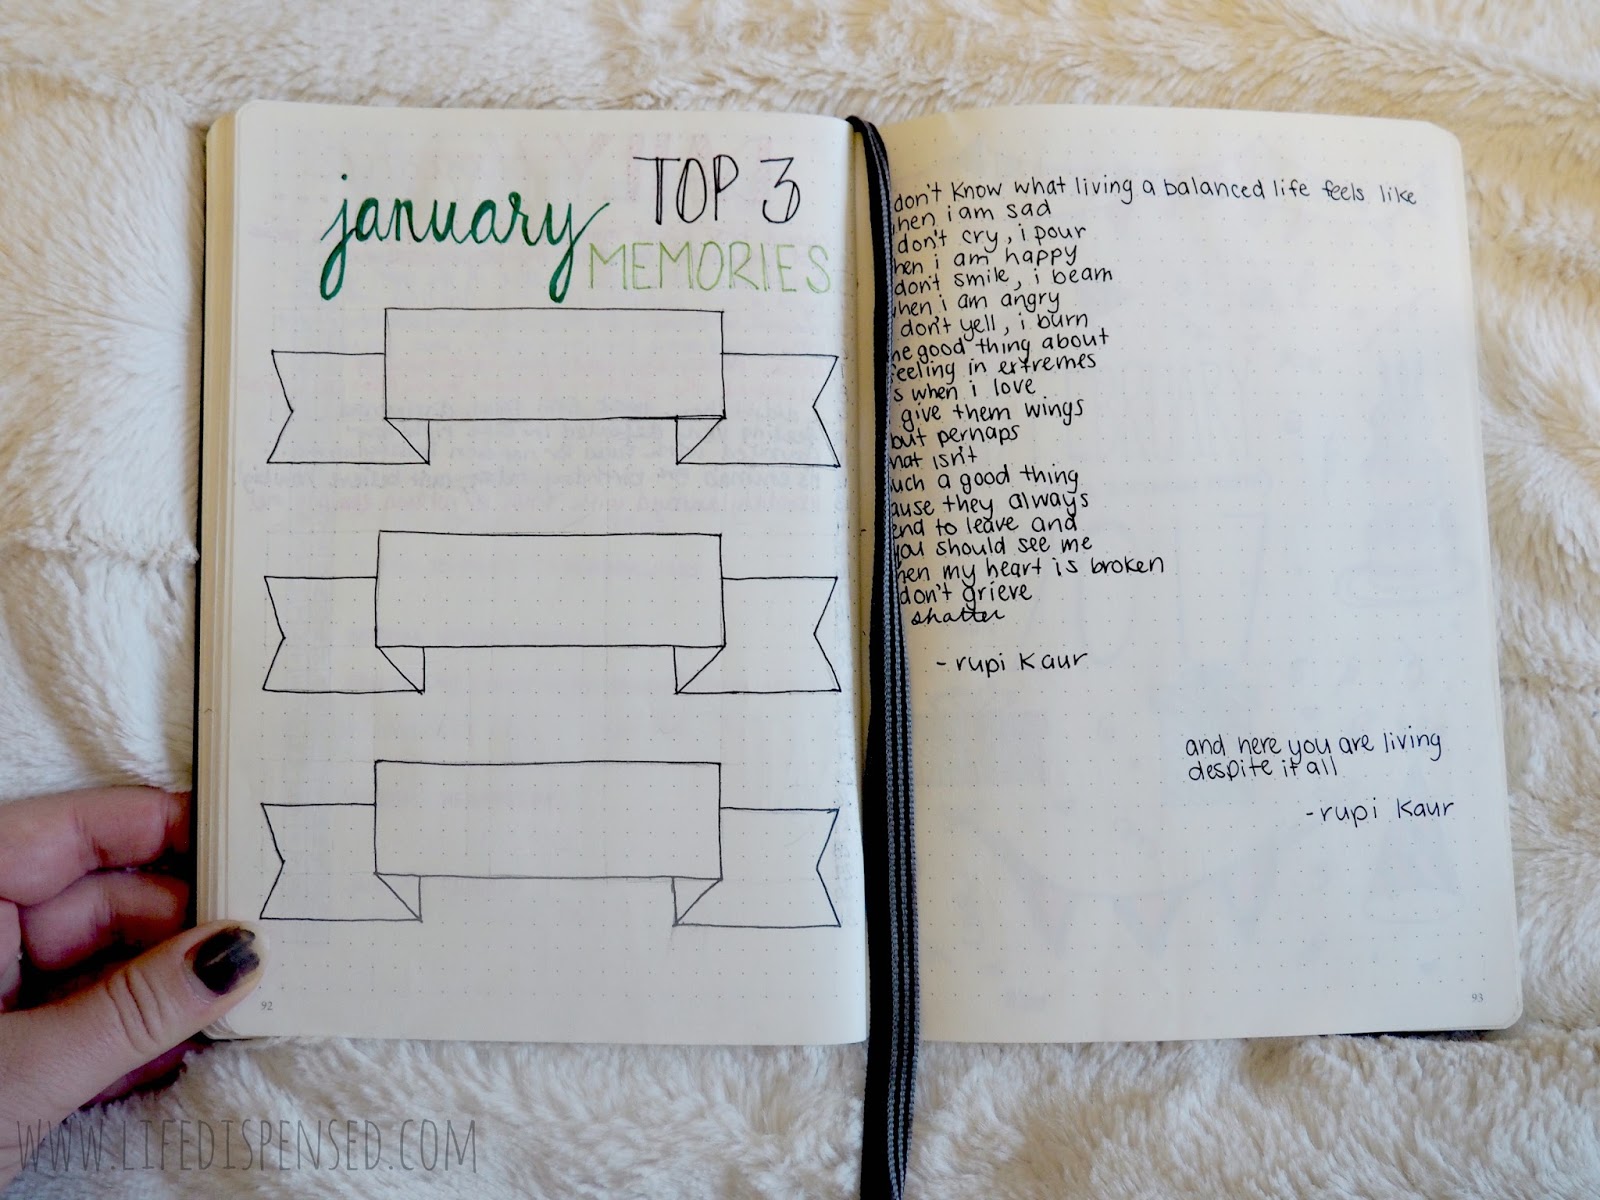 january TOP 3
MEMORIES
92
don't know what living a balanced life feels like
hen i am sad
don't cry, i pour
hen i am happy
don't smile, i beam
when i am angry
don't yell, i burn
he good thing about
feeling in extremes
s when i love
give them wings
but perhaps
hat isn't
uch a good thing
ause they always
end to leave and
you should see me
hen my heart is broken
don't grieve
shatter
- rupi kaur
and here you are living
despite it all
- rupi kaur
93
WWW.LIFEDISPENSED.COM